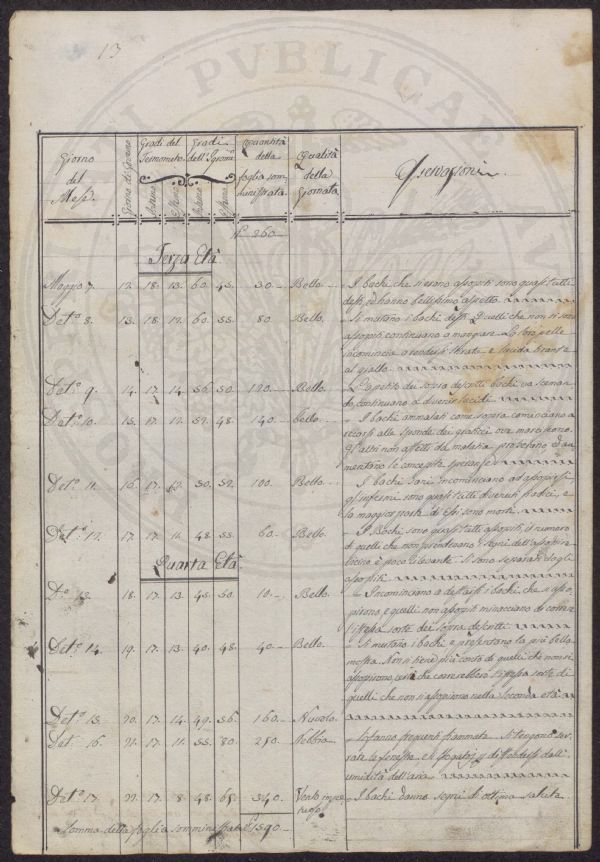 13
PVBLICAE
Giorno del Mese
Giorno del Governo
Gradi del Termometro
Gradi dell'Igrom.
Quantità della foglia somministrata
Qualità della Giornata
Osservazioni
260
Terza Età
Maggio 7. 12. 18. 13. 60. 45. 30. Bello. I bachi che si erano assopiti sono quasi tutti
desti, ed hanno bellissimo aspetto.
Detº 8. 13. 18. 12. 60. 55. 80 Bello. Si mutano i bachi desti. Quelli che non si sono
assopiti continuano a mangiare. La loro pelle
incomincia a rendersi lucida tirante
al giallo
Detº 9. 14. 17. 14. 56. 50. 120. Bello. L'apetito dei sovra descritti bachi va scemando
continuano a divenir lucidi
Detº 10. 15. 17. 12. 52. 48. 140. bello. I bachi ammalati come sopra cominciano a
recarsi alle sponde dei graticci ove marciscono.
Gl'altri non affetti da malatia prosperano ed au
mentano le concepite speranze
Detº 11. 16. 17. 12. 50. 52. 100. Bello. I bachi sani incominciano ad assopirsi
gl'infermi sono quasi tutti divenuti fradici, e
la maggior parte di essi sono morti.
Detº 12. 17. 17. 11. 48. 55. 60. Bello. I Bachi sono quasi tutti assopiti, il numero
di quelli che non prendevano i segni dell'assopi
è poco rilevante. Si sono separati dagli
assopiti
Quarta Età
Dº 13. 18. 17. 13. 45. 50. 10. Bello. Incominciano a destarsi i bachi, che s'asso
pirono, e quelli non assopiti minacciano di correre
l'istessa sorte dei sopra descritti
Detº 14. 19. 17. 13. 40. 48. 40. Bello. Si mutano i bachi e presentano la più bella
mostra. Non si tiene più conto di quelli che non si
assopirono, che correrebbero l'istessa sorte di
quelli che non si assopirono nella seconda età
Detº 15. 20. 17. 14. 49. 56. 160. Nuvolo.
Detº 16. 21. 17. 11. 55. 80. 280. Nebbia. Si fanno frequenti fiammate. Si tengono ser
rate le finestre, e li sfogatoj di diffendersi dall'
umidità dell'aria.
Detº 17. 22. 17. 8. 48. 68. 340. Vento impe
tuoso. I bachi danno segni di ottima salute.
Somma della foglia somministrata 1590